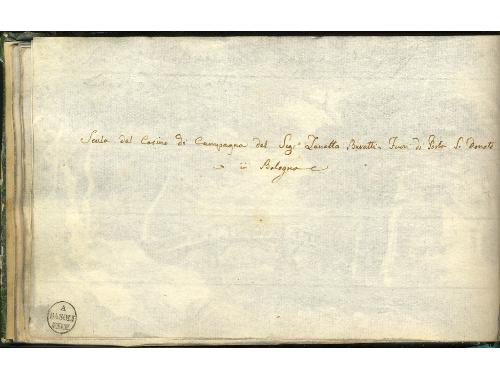 Scala del Casino di Campagna del Sig.r Zanetta Buratti Fuori di Porta S. Donato
in Bologna
A
BASOLI